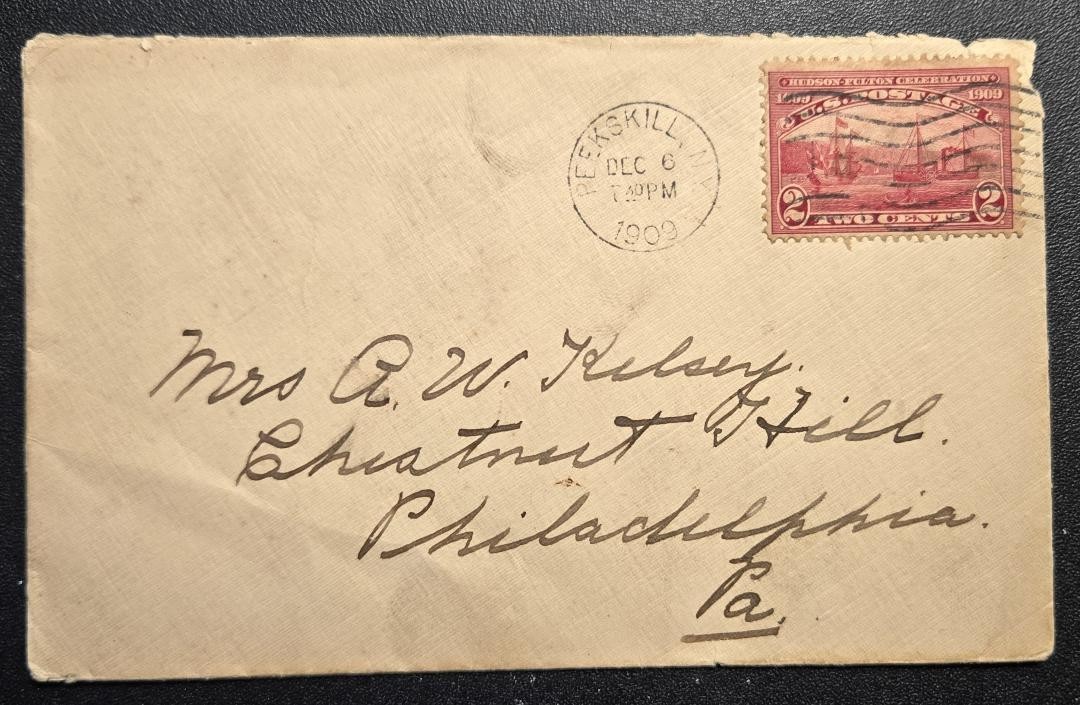 HUDSON-FULTON CELEBRATION
1609 1909
U.S. POSTAGE
2 TWO CENTS 2
PEEKSKILL, N.Y.
DEC 6
PM
1909
Mrs A. W. Kelsey.
Chestnut Hill.
Philadelphia.
Pa.